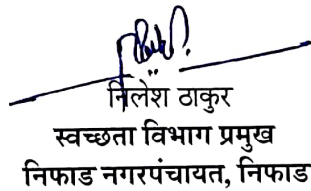 निलेश ठाकुर
स्वच्छता विभाग प्रमुख
निफाड नगरपंचायत, निफाड